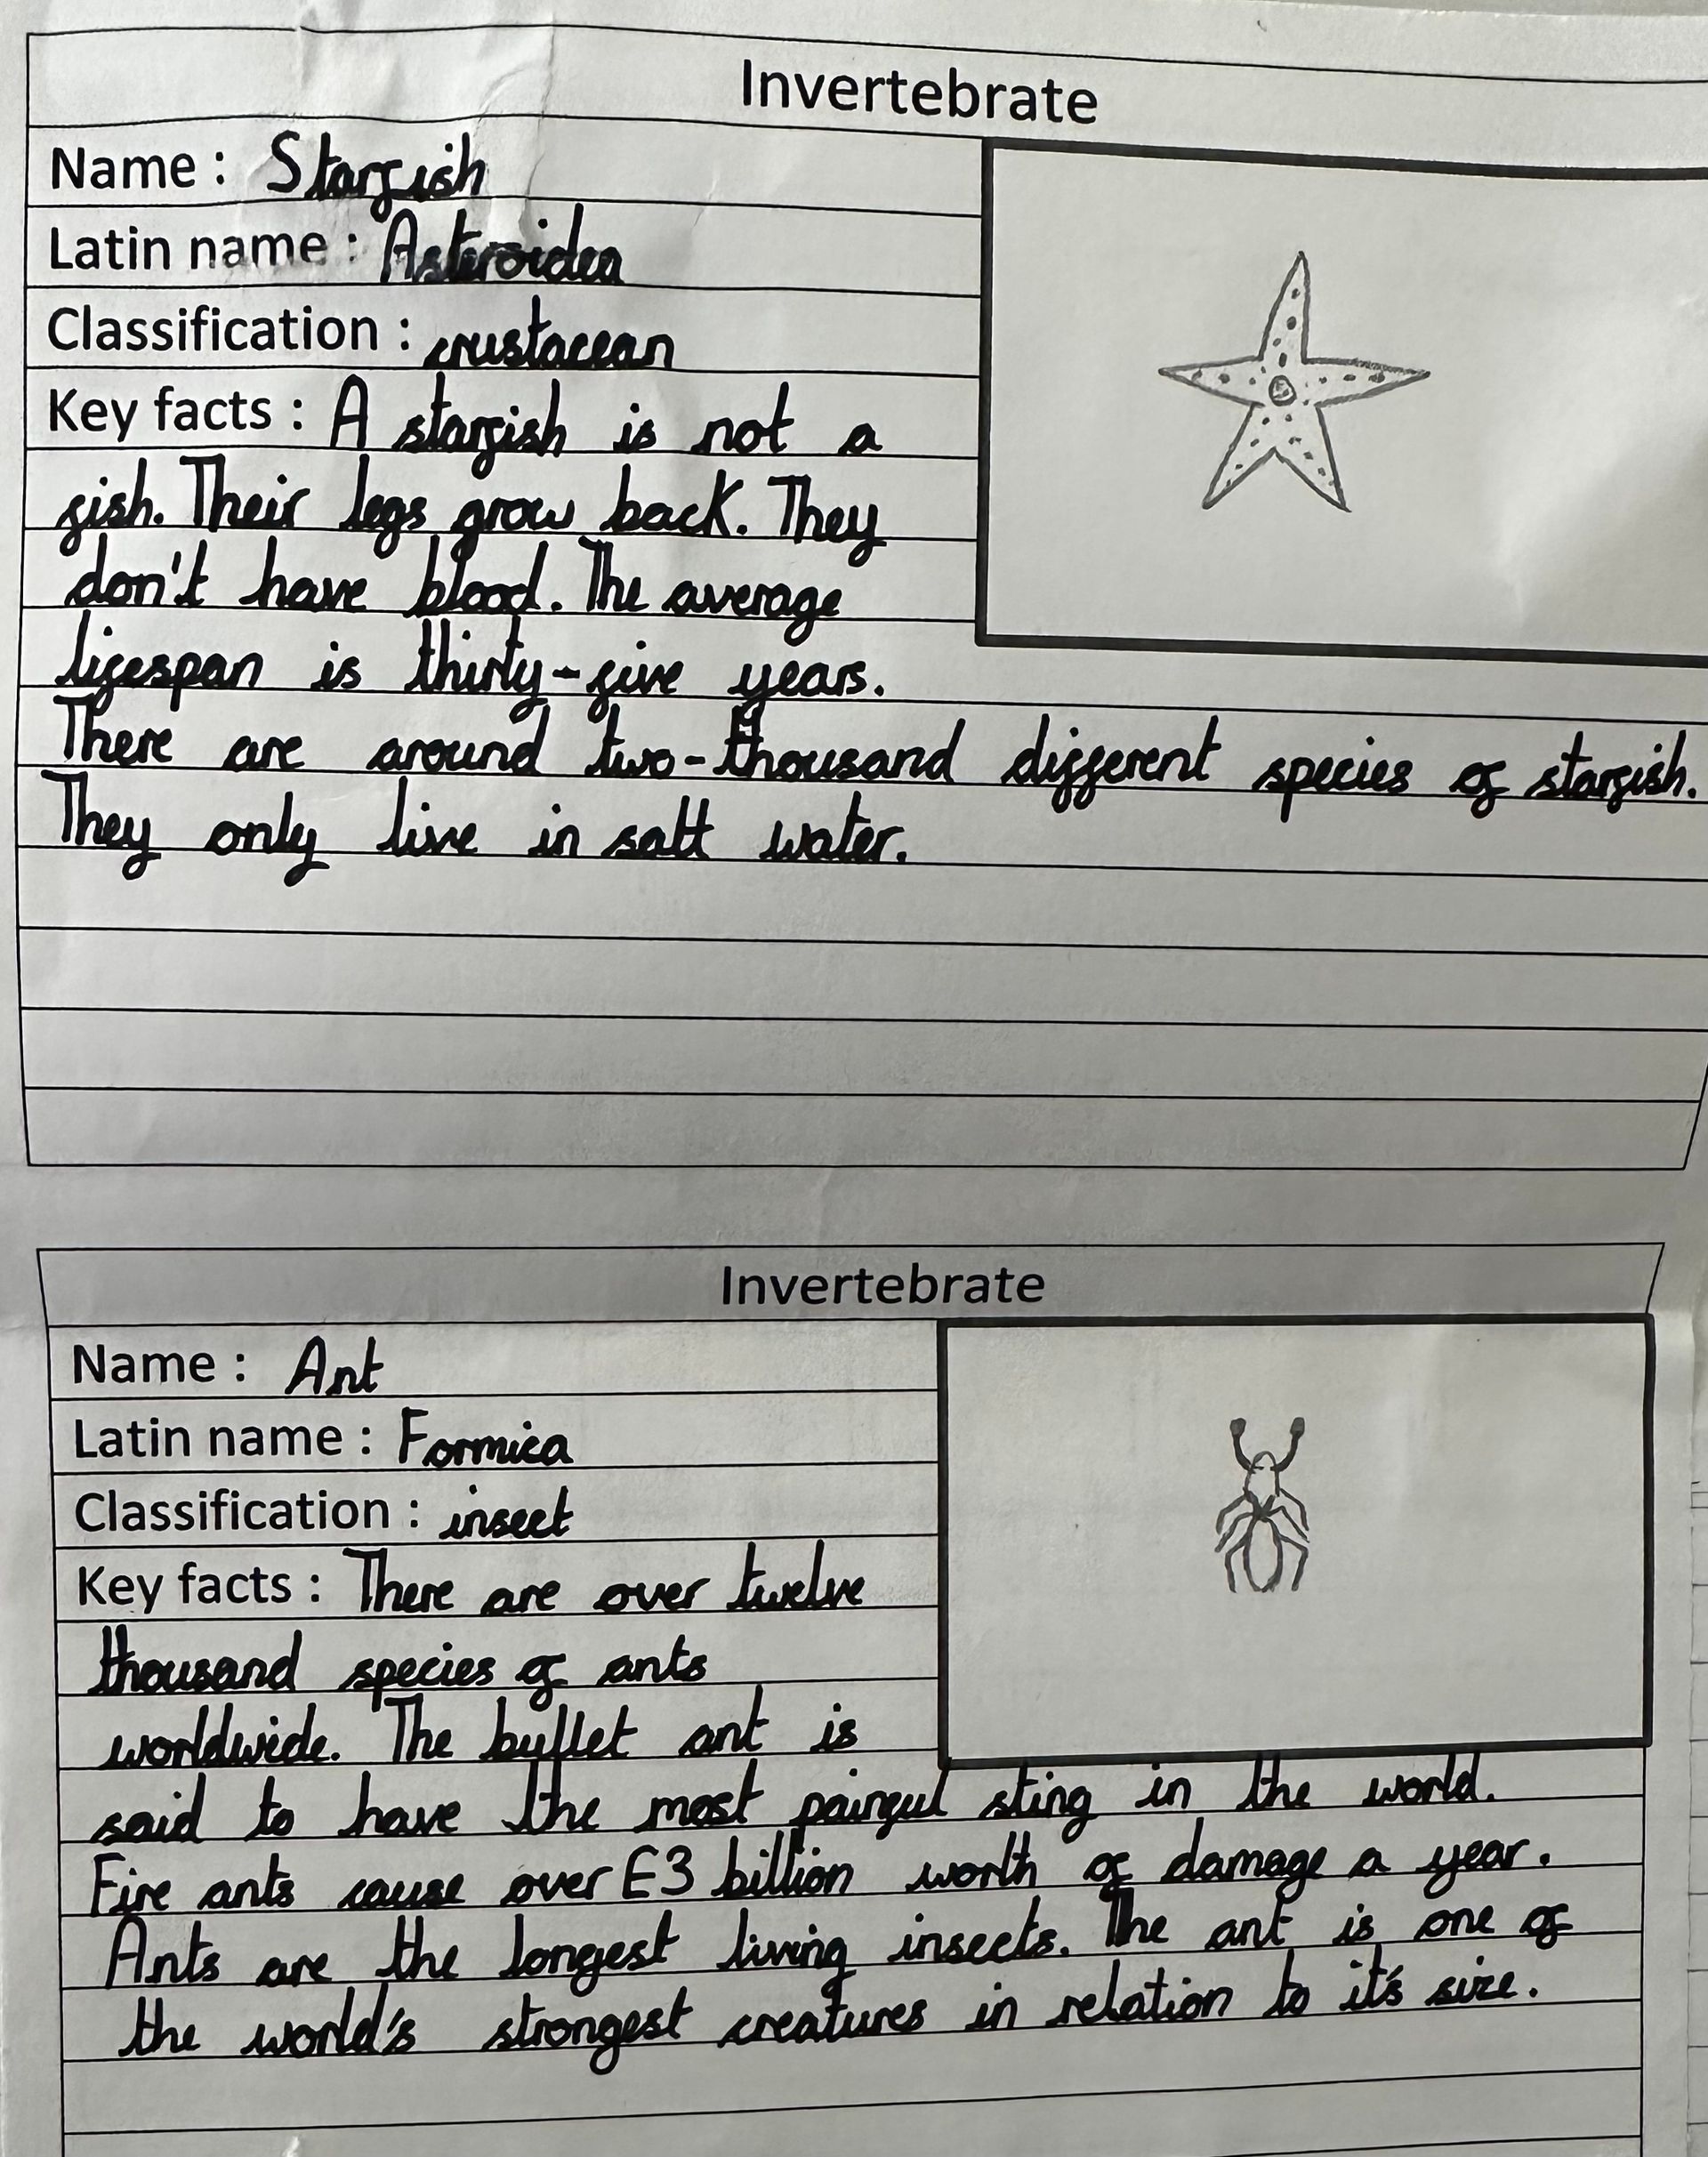 Invertebrate
Name : Starfish
Latin name : Asteroidea
Classification : crustacean
Key facts : A starfish is not a
fish. Their legs grow back. They
don't have blood. The average
lifespan is thirty-five years.
There are around two-thousand different species of starfish.
They only live in salt water.
Invertebrate
Name : Ant
Latin name : Formica
Classification : insect
Key facts : There are over twelve
thousand species of ants
worldwide. The bullet ant is
said to have the most painful sting in the world.
Fire ants cause over £3 billion worth of damage a year.
Ants are the longest living insects. The ant is one of
the world's strongest creatures in relation to it's size.